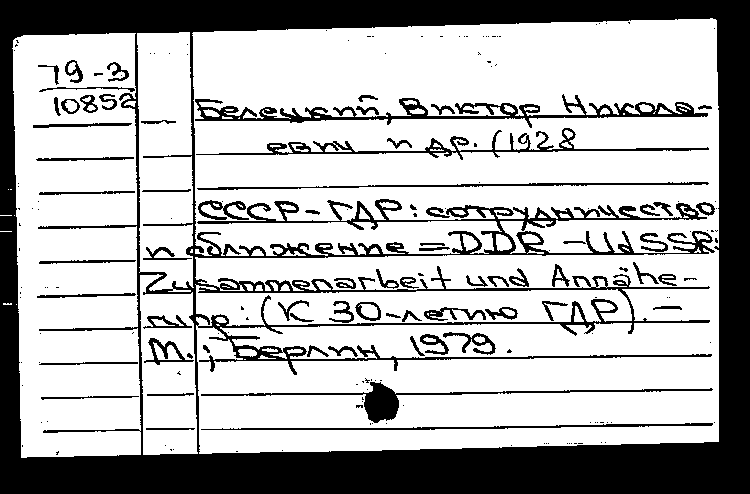 79-3
10852
Белецкий, Виктор Никола-
евич и др. (1928
СССР-ГДР: сотрудничество
и сближение = DDR - UdSSR:
Zusammenarbeit und Annähe-
rung: (К 30-летию ГДР). -
М.; Берлин, 1979.